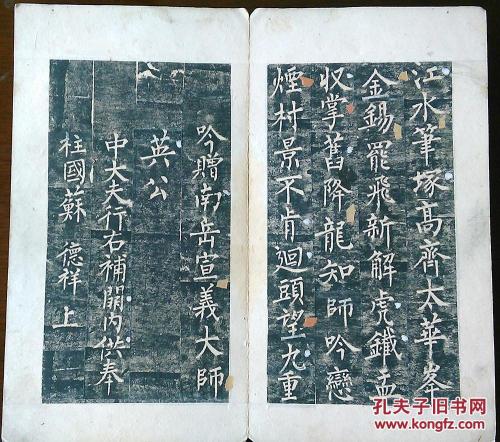 江水筆塚高齊太華峯
金錫罷飛新解虎鐵盂
収掌舊降龍知師吟戀
煙村景不肯迴頭望九重
吟贈南岳宣義大師
英公
中大夫行右補闕內供奉
柱國蘇 德祥 上
孔夫子旧书网
www.kongfz.com